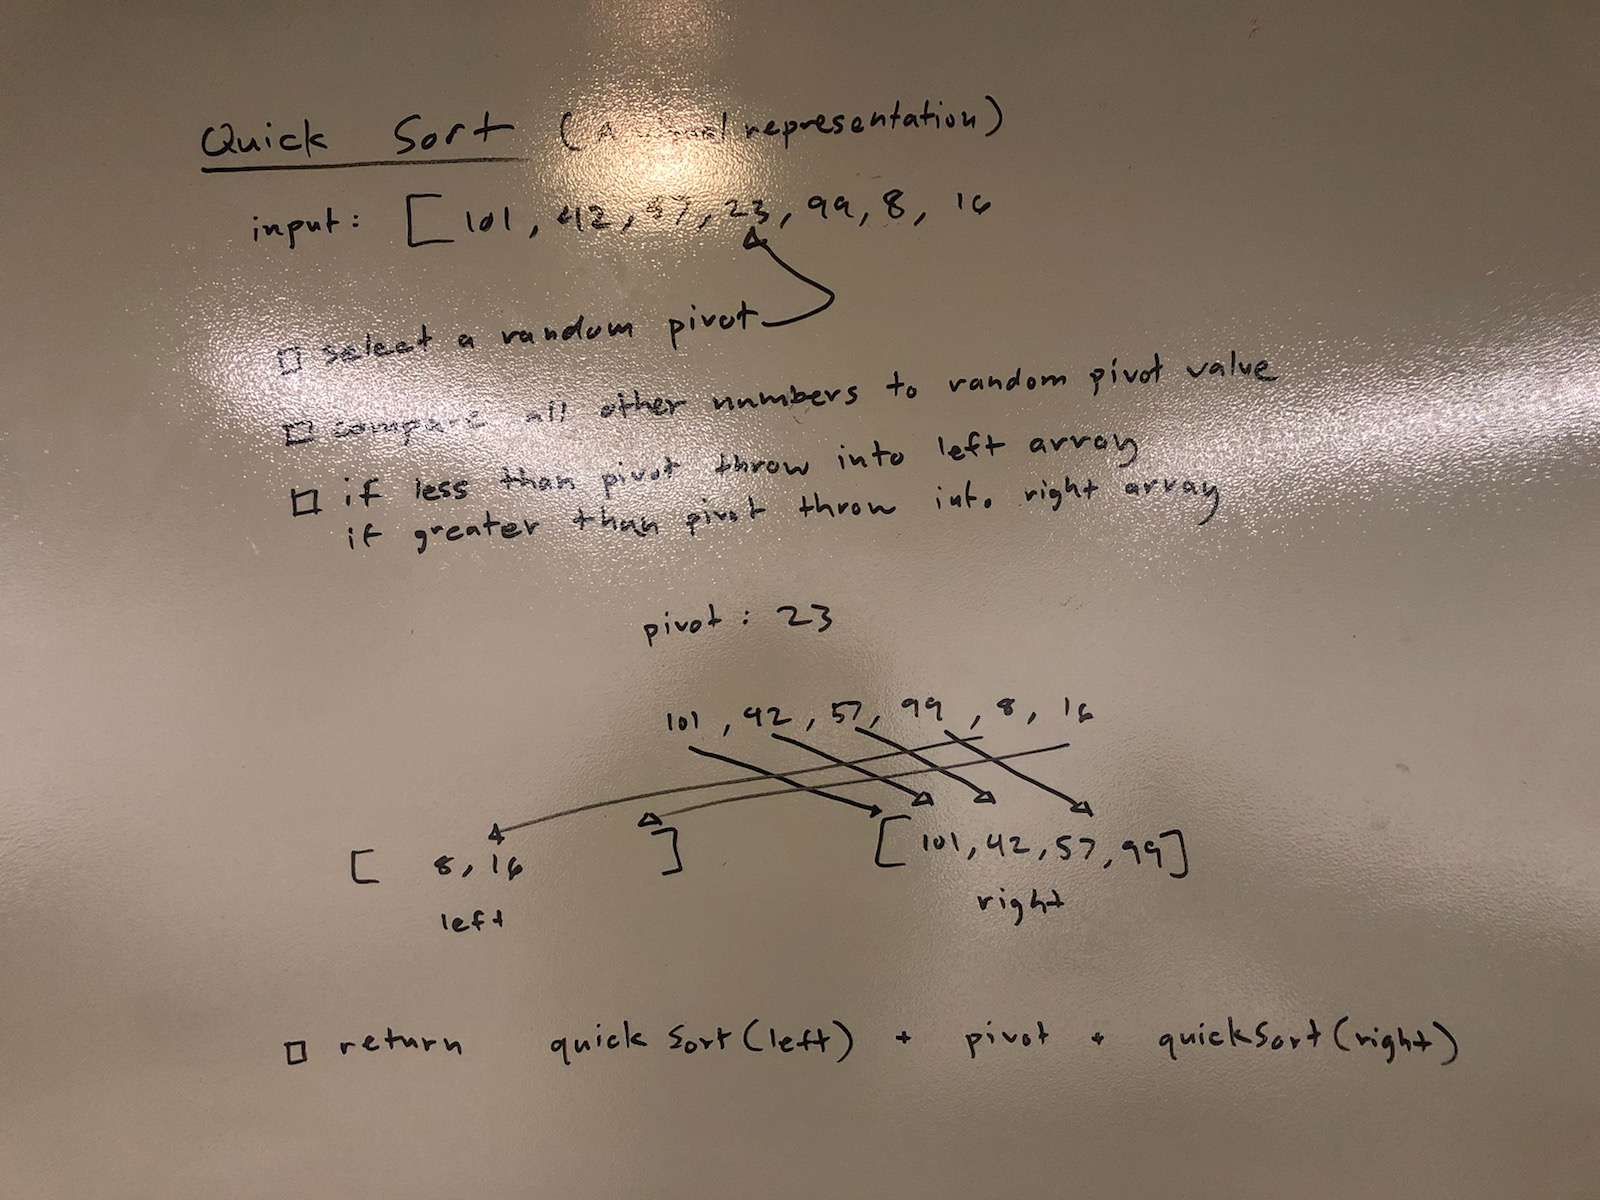 Quick Sort (A visual representation)
input: [ 101, 42, 57, 23, 99, 8, 16
select a random pivot
compare all other numbers to random pivot value
if less than pivot throw into left array
if greater than pivot throw into right array
pivot: 23
101, 42, 57, 99, 8, 16
[ 8, 16 ] [101, 42, 57, 99]
left right
return quickSort(left) + pivot + quickSort(right)